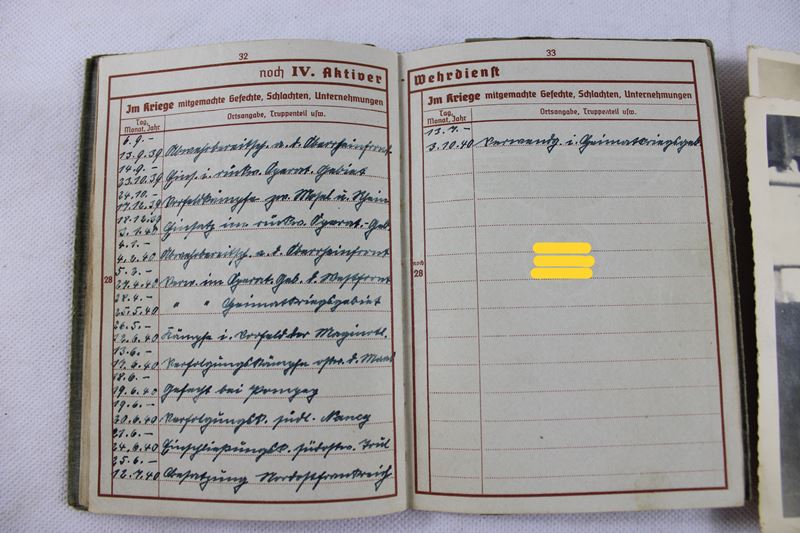 32
noch IV. Aktiver
Im Kriege mitgemachte Gefechte, Schlachten, Unternehmungen
Tag, Monat, Jahr
Ortsangabe, Truppenteil usw.
6.9. –
13.9.39 Abwehrbereitsch. a. d. Oberrheinfront
14.9. –
23.10.39 Eins. i. rückw. Operat. Gebiet
24.10. –
17.12.39 Vorfeldkämpfe zw. Mosel u. Rhein
18.12.39
3.1.40 Einsatz im rückw. Operat.-Geb.
4.1. –
4.2.40 Abwehrbereitsch. a. d. Oberrheinfront
5.2. –
27.4.40 Verw. im Operat. Geb. d. Westfront
28.4. –
25.5.40 " " Heimatkriegsgebiet
26.5. –
12.6.40 Kämpfe i. Vorfeld der Maginotl.
13.6. –
17.6.40 Verfolgungskämpfe d. Maas
18.6. –
19.6.40 Gefecht bei Pompey
19.6. –
20.6.40 Verfolgungsk. südl. Nancy
21.6. –
24.6.40 Einschließungsk. südostw. Toul
25.6. –
12.7.40 Besatzung Nordostfrankreich
28
33
Wehrdienst
Im Kriege mitgemachte Gefechte, Schlachten, Unternehmungen
Tag, Monat, Jahr
Ortsangabe, Truppenteil usw.
13.7. –
3.10.40 Verwendg. i. Heimatkriegsgeb.
noch
28